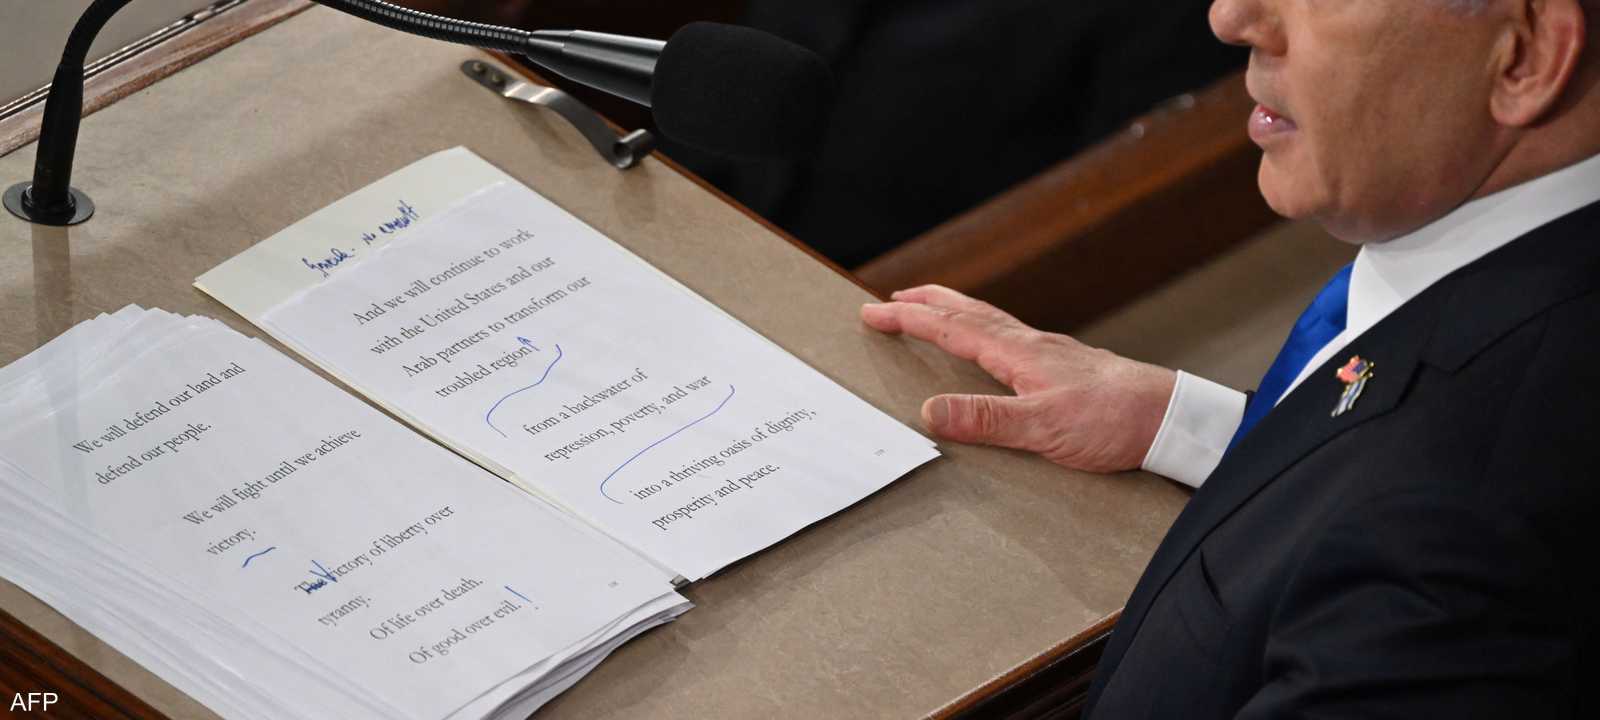 We will defend our land and
defend our people.
We will fight until we achieve
victory.
The Victory of liberty over
tyranny.
Of life over death.
Of good over evil.!
And we will continue to work
with the United States and our
Arab partners to transform our
troubled region
from a backwater of
repression, poverty, and war
into a thriving oasis of dignity,
prosperity and peace.
AFP